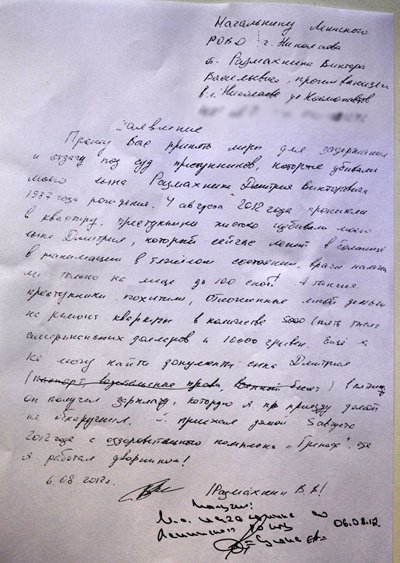 Начальнику Ленинского
РОВД г. Николаева
Размахнина Виктора
Васильевича, проживающего
в г. Николаеве ул Космонавтов
Заявление
Прошу Вас принять меры для задержания
и отдачу под суд преступников, которые убивали
моего сына Размахнина Дмитрия Викторовича
1987 года рождения. 4 августа 2012 года проникли
в квартиру, преступники жестоко избивали моего
сына Дмитрия, который сейчас лежит в больнице
в реанимации в тяжёлом состоянии, врачи наложи-
ли только на лице до 100 швов! А также
преступники похитили, отложенные мной деньги
на ремонт квартиры в количестве 5000 (пять тысяч
американских долларов и 10000 гривен. Ещё я
не могу найти документы сына Дмитрия
(паспорт, водительские права, военный билет) в пятницу
он получил зарплату, которую я, по приезду домой
не обнаружил. Я приехал домой 5 августа
2012 года с оздоровительного комплекса где
я работал дворником!
6.08.2012г. /Размахнин В.В./
Ленинского РО
06.08.12.